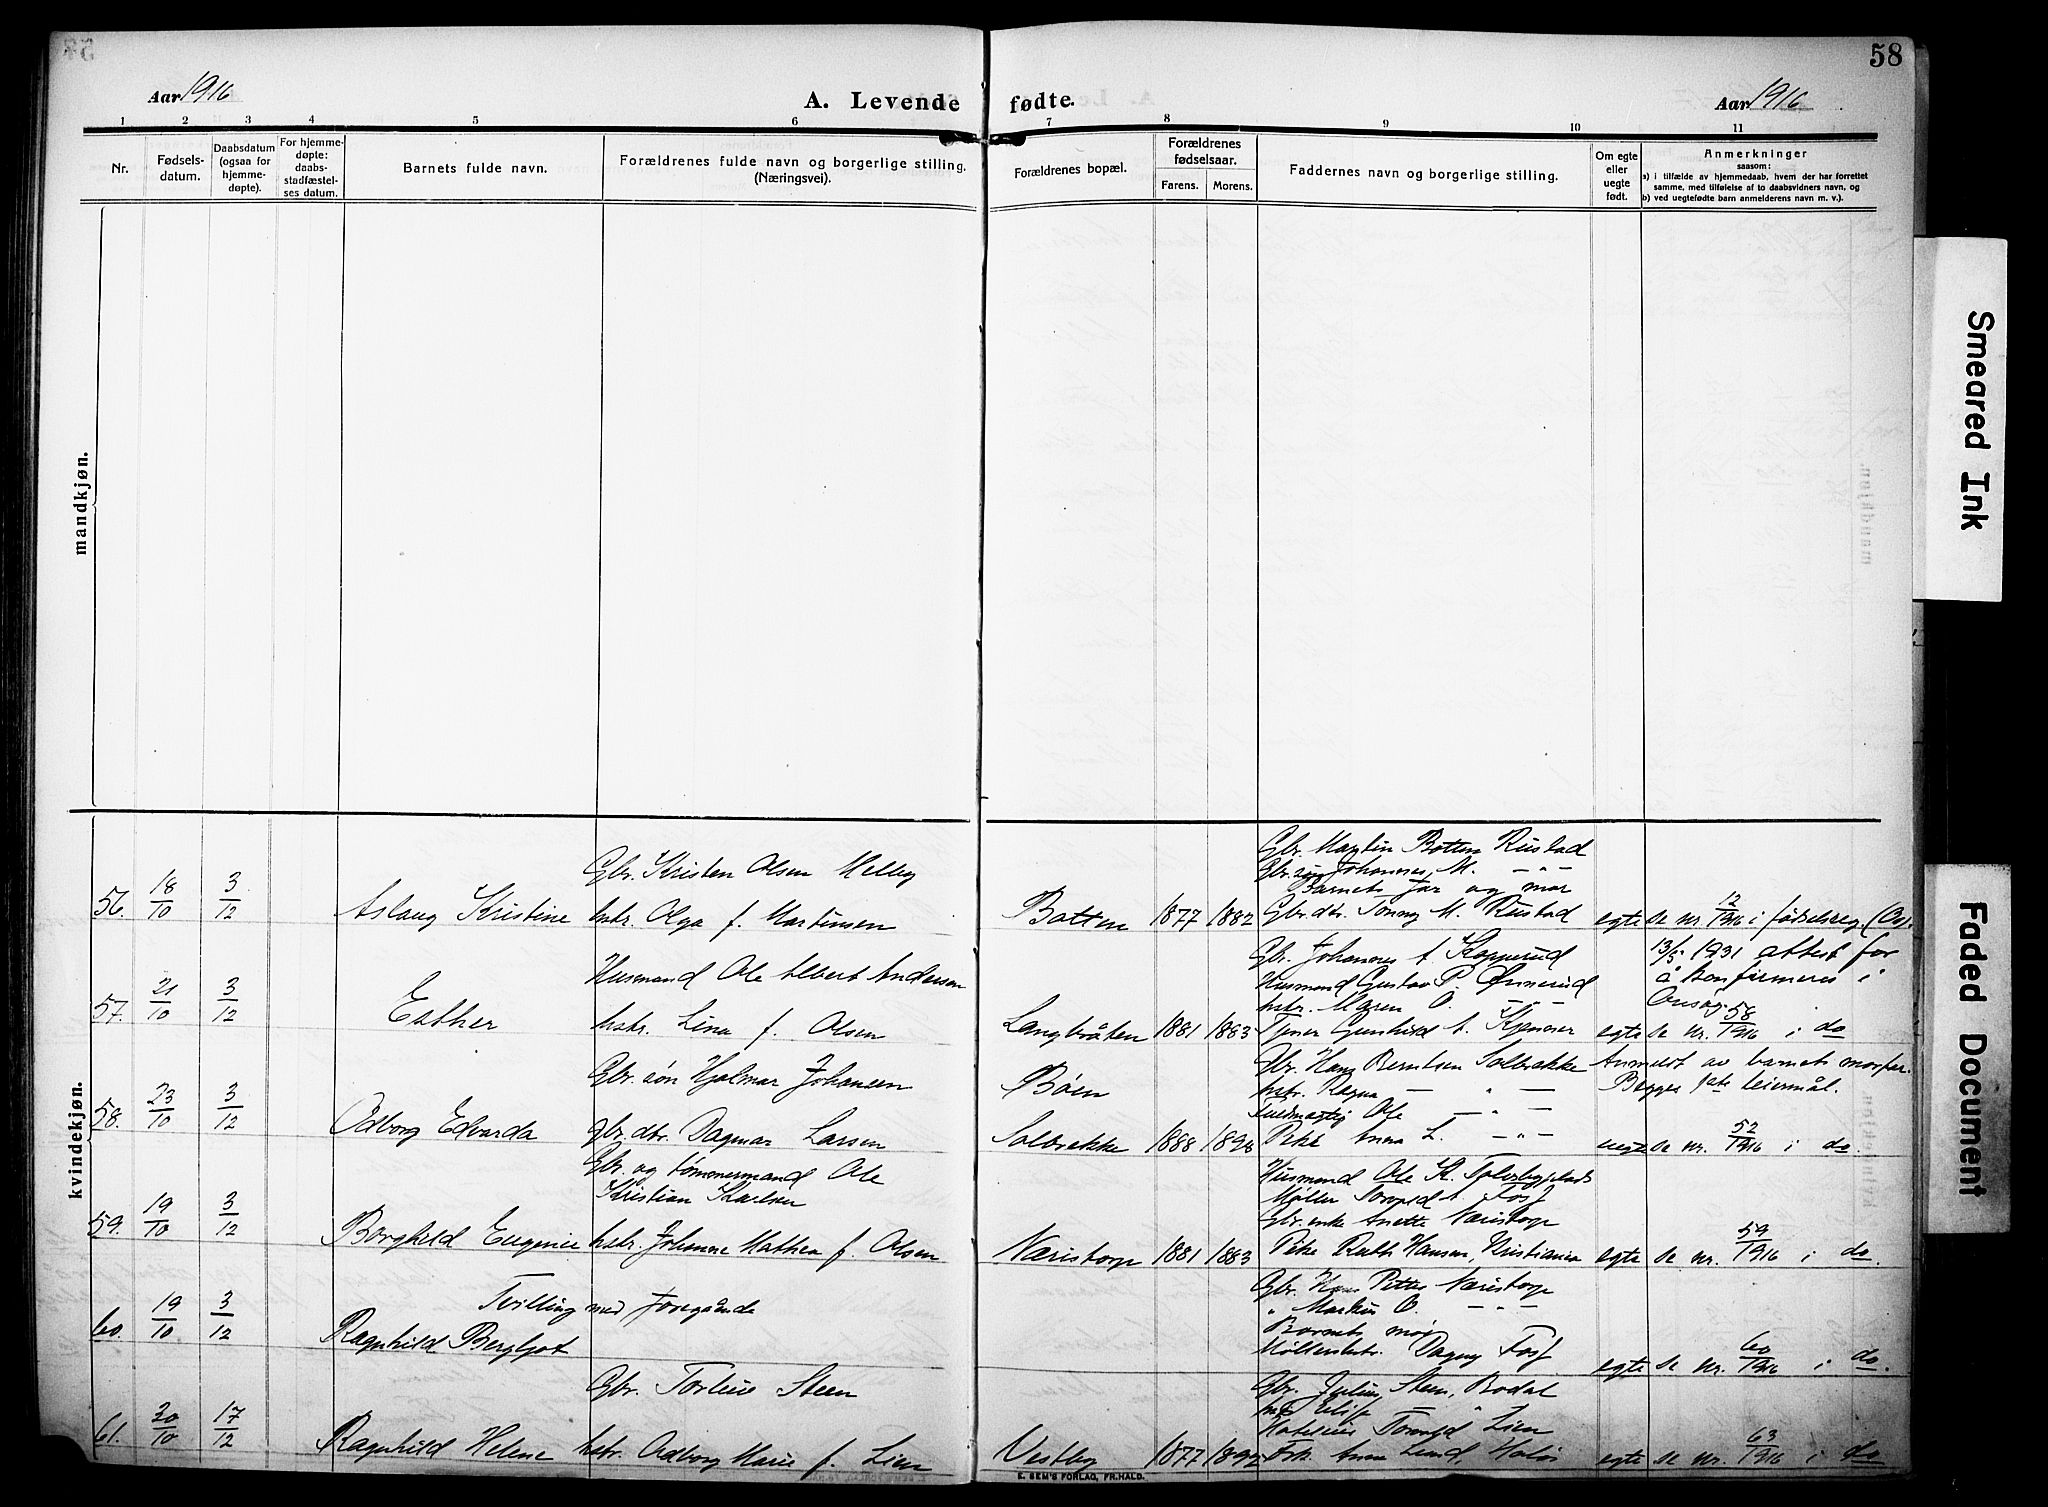 58
Aar 1916
A. Levende fødte.
Aar 1916
1 2 3 4 5 6 7 8 9 10 11
Nr.
Fødsels-
datum.
Daabsdatum
(ogsaa for
hjemme-
døpte).
For hjemme-
døpte:
daabs-
stadfæstel-
ses datum.
Barnets fulde navn.
Forældrenes fulde navn og borgerlige stilling.
(Næringsvei).
Forældrenes bopæl.
Forældrenes
fødselsaar.
Farens. Morens.
Faddernes navn og borgerlige stilling.
Om egte
eller
uegte
født.
Anmerkninger
saasom:
a) i tilfælde av hjemmedaab, hvem der har forrettet
samme, med tilføielse af to daabsvidners navn, og
b) ved uegtefødte barn anmelderens navn m. v.).
mandkjøn.
kvindekjøn.
56. 18/10 3/12 Aslaug Kristine
Gbr. Kristen Olsen Melby
hstr. Olga f. Martinsen
Botten 1877 1882
Gbr. Martin Botten Rustad
Gbr. søn Johannes M. — " —
Barnets far og mor
Gbr. dtr. Tonny M. Rustad
egte se nr. 12/1916 i fødselsreg. (Os).
57. 21/10 3/12 Esther
Husmand Ole Albert Andersen
hstr. Lina f. Olsen
Langbråten 1881 1883
Gbr. Johannes A. Kopperud
Husmand Gustav P. Ørmerud
hstr. Maren O. — " —
Tjener Gunhild A. Kjenner
13/5 1931 attest for
å konfirmeres i
Onsøy.
egte se nr. 58/1916 i do
58. 23/10 3/12 Odborg Edvarda
Gbr. søn Hjalmar Johansen
gbr. dtr. Dagmar Larsen
Bøen
Solbrække 1888 1898
Gbr. Hans Berntsen Solbrække
hstr. Ragna — " —
Fuldmægtig Ole — " —
Pike Anna L. — " —
Anmeldt av barnets morfar.
Begges 1ste leiermål.
uegte se nr. 52/1916 i do.
59. 19/10 3/12 Borghild Eugenie
Gbr. og tømmermand Ole
Kristian Karlsen
hstr. Johanne Mathea f. Olsen
Næristorp 1881 1883
Husmand Ole K.
Møller Torvald A. Fosf
Gbr. enke Anette Næristorp
Pike Ruth Hansen, Kristiania
egte se nr. 59/1916 i do.
60. 19/10 3/12 Tvilling med foregående
Ragnhild Bergljot
Gbr. Hans Petter Næristorp
" Markus O. — " —
Barnets mor
Møllerhstr. Dagny Fosf
egte se nr. 60/1916 i do.
61. 30/10 17/12 Ragnhild Helene
Gbr. Torleus Steen
hstr. Odborg Marie f. Lien
Vestby 1877 1892
Gbr. Julius Steen, Bodal
hstr. Elise "
Torvald Lien
Frk. Anna Lund,
egte se nr. 63/1916 i do
E. SEM'S FORLAG, FR.HALD.
Smeared Ink
Faded Document